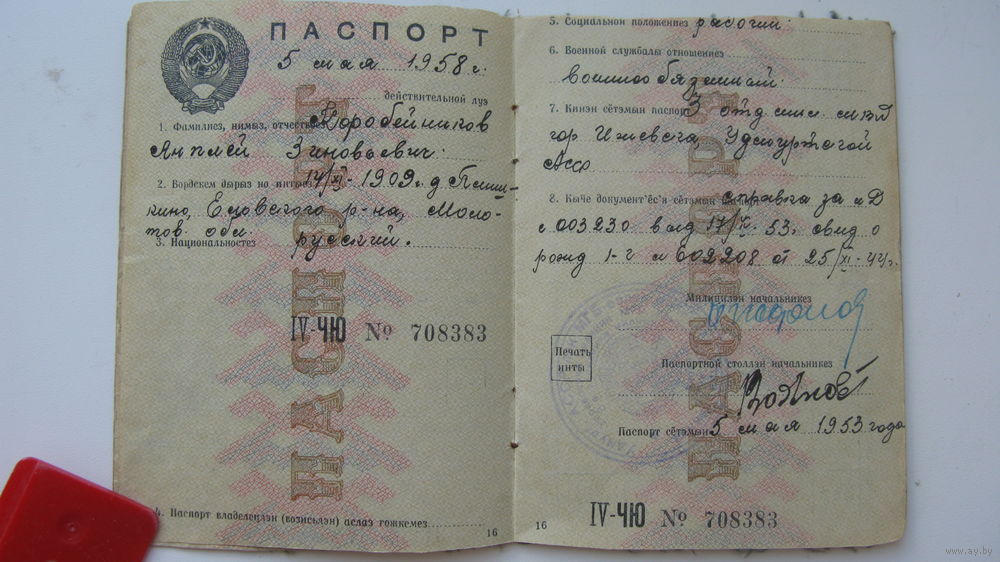 ПАСПОРТ
5 мая 1958 г.
действительной луэ
1. Фамилиез, нимыз, отчествоез Коробейников
Зиновьевич.
2. Вордӥськем дырыз но интыез 14/XI-1909 г. д. Пеши-
кино, Еловского р-на, Моло-
тов. обл.
3. Национальностез русский.
IV-ЧЮ № 708383
4. Паспорт владелецлэн (возисьлэн) аслаз гожкемез
16
5. Социальной положениез рабочий.
6. Военной службалы отношениез
военнообязанный
7. Кинэн сётэмын паспорт 3 отд
гор Ижевска Удмуртской
Асср
8. Кыӵе документ'ёс'я сётэмын справка за
003230 выд 17/IV. 53г свид о
рожд 1-г № 602208 от 25/XI-44г.
Милицилэн начальникез
Печать
инты
Паспортной столлэн начальникез
Паспорт сётэмын 5 мая 1953 года
IV-ЧЮ № 708383
16
www.ay.by